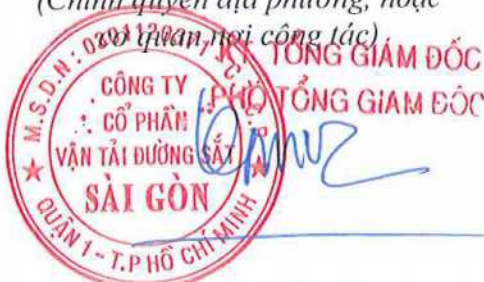 (Chính quyền địa phương, hoặc
cơ quan nơi công tác)
TỔNG GIÁM ĐỐC
PHÓ TỔNG GIÁM ĐỐC
M.S.D.N:
CÔNG TY
CỔ PHẦN
VẬN TẢI ĐƯỜNG SẮT
SÀI GÒN
QUẬN 1 - T.P HỒ CHÍ MINH